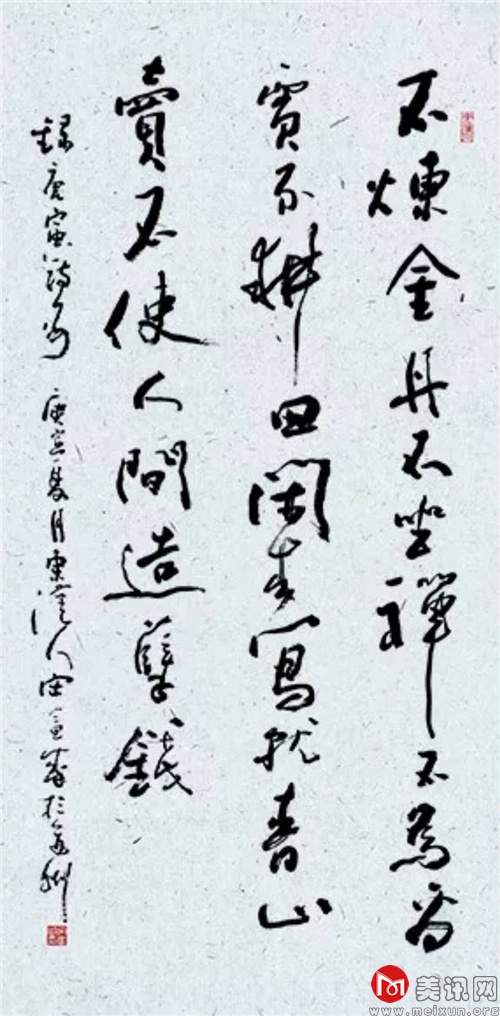 不煉金丹不坐禪不為商
賈不耕田閑來寫就青山
賣不使人間造孽錢
錄唐寅詩句 夏月 人 於 州
美讯网
www.meixun.org